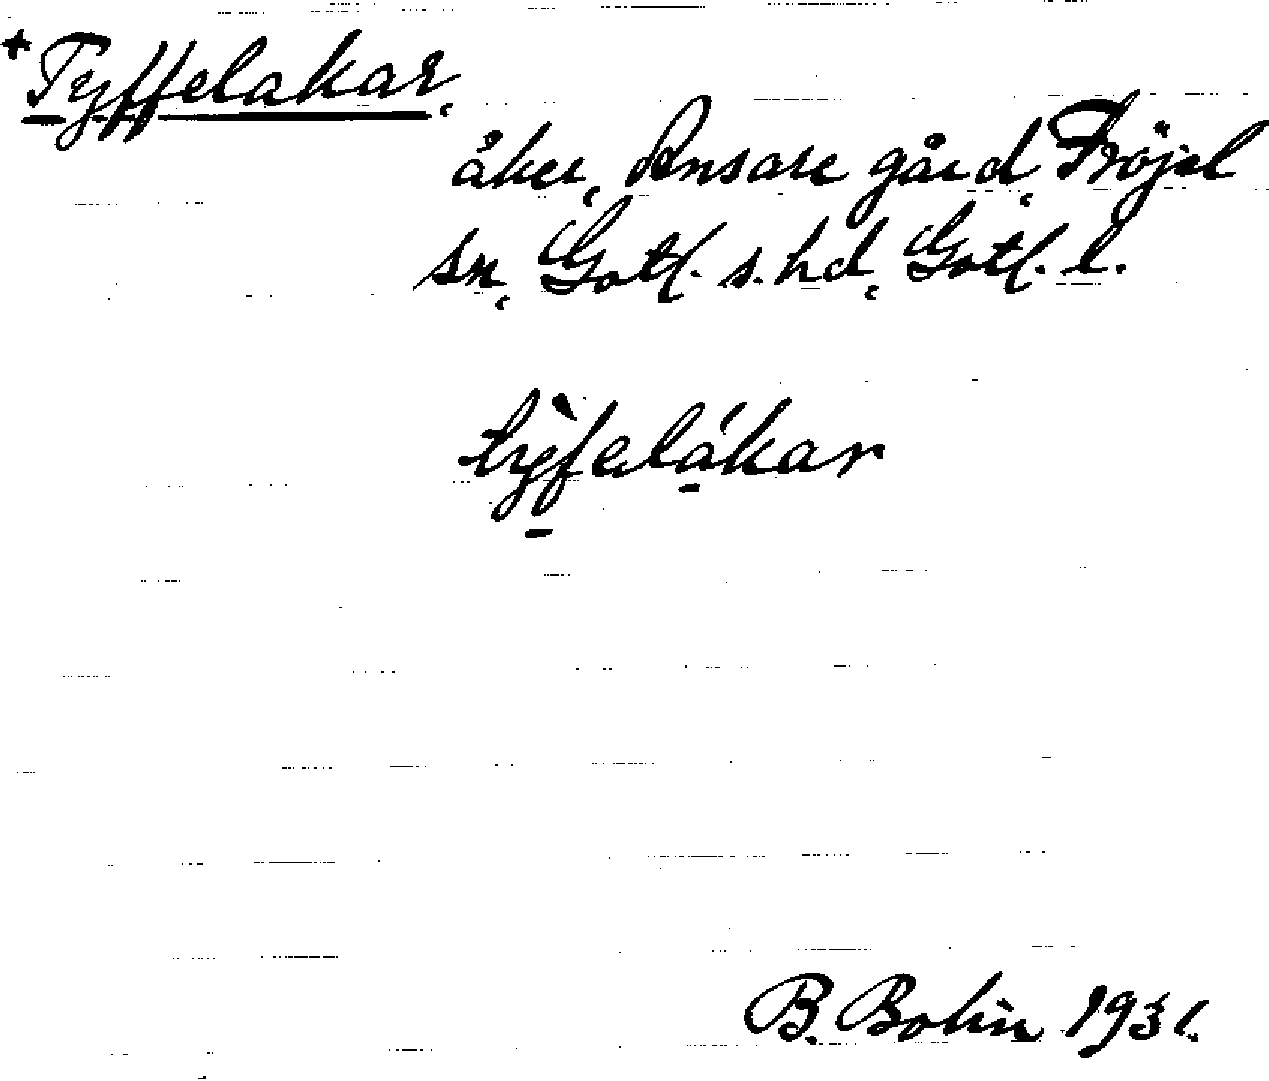 +Tyffelakar,
åker, Ansare gård, Fröjel
sn, Gotl. s. hd, Gotl. l.
tỳfəlákar
B. Bolin 1931.